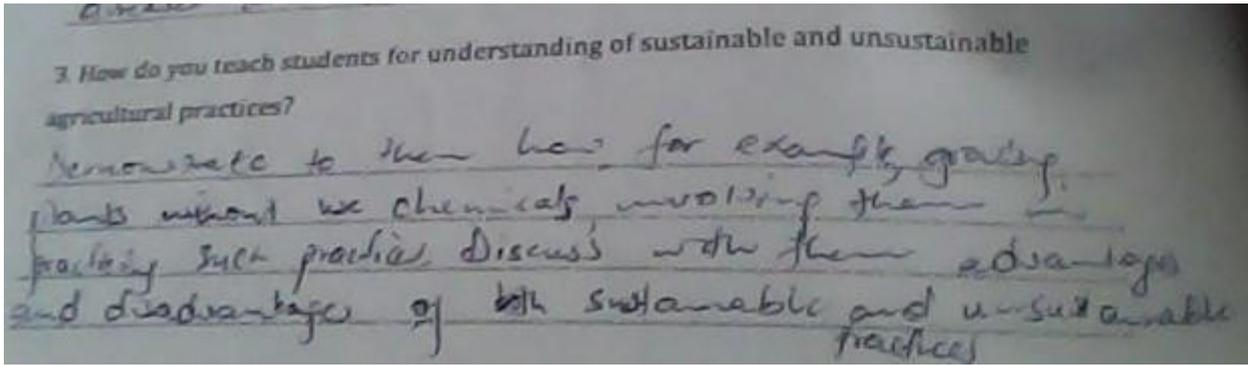 3. How do you teach students for understanding of sustainable and unsustainable
agricultural practices?
Demonstrate to them how for example, growing
plants without use chemicals, involving them in
practicing such practices. Discuss with them advantages
and disadvantages of both sustainable and unsustainable
practices